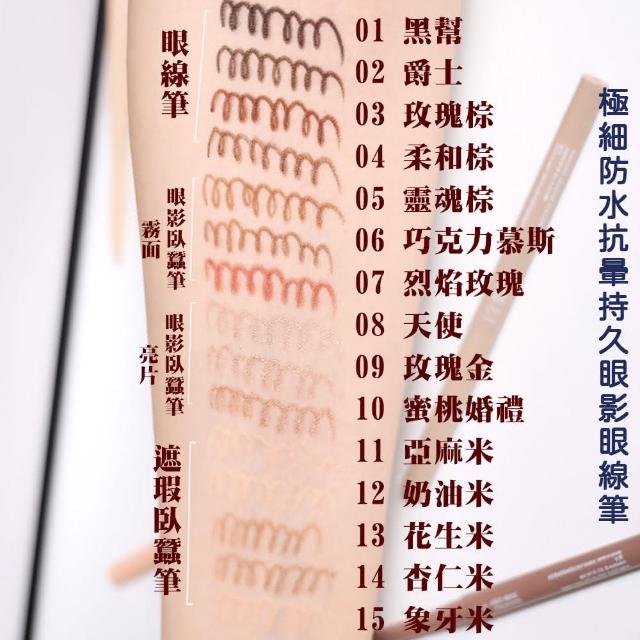 眼線筆
01 黑幫
02 爵士
03 玫瑰棕
04 柔和棕
眼影臥蠶筆
霧面
05 靈魂棕
06 巧克力慕斯
07 烈焰玫瑰
眼影臥蠶筆
亮片
08 天使
09 玫瑰金
10 蜜桃婚禮
遮瑕臥蠶筆
11 亞麻米
12 奶油米
13 花生米
14 杏仁米
15 象牙米
極細防水抗暈持久眼影眼線筆